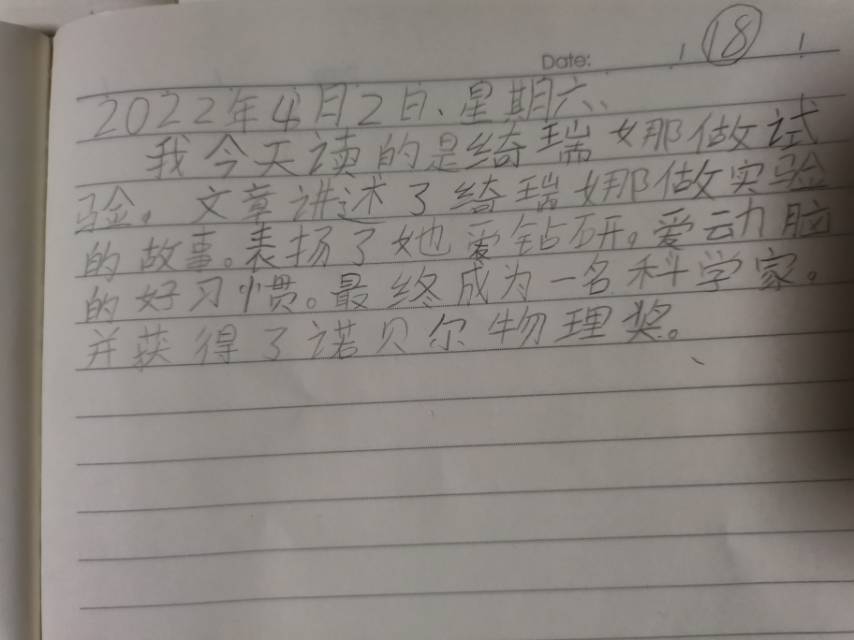 Date: / ⑱ /
2022年4月2日、星期六、
我今天读的是绮瑞娜做试
验。文章讲述了绮瑞娜做实验
的故事。表扬了她爱钻研。爱动脑
的好习惯。最终成为一名科学家。
并获得了诺贝尔物理奖。